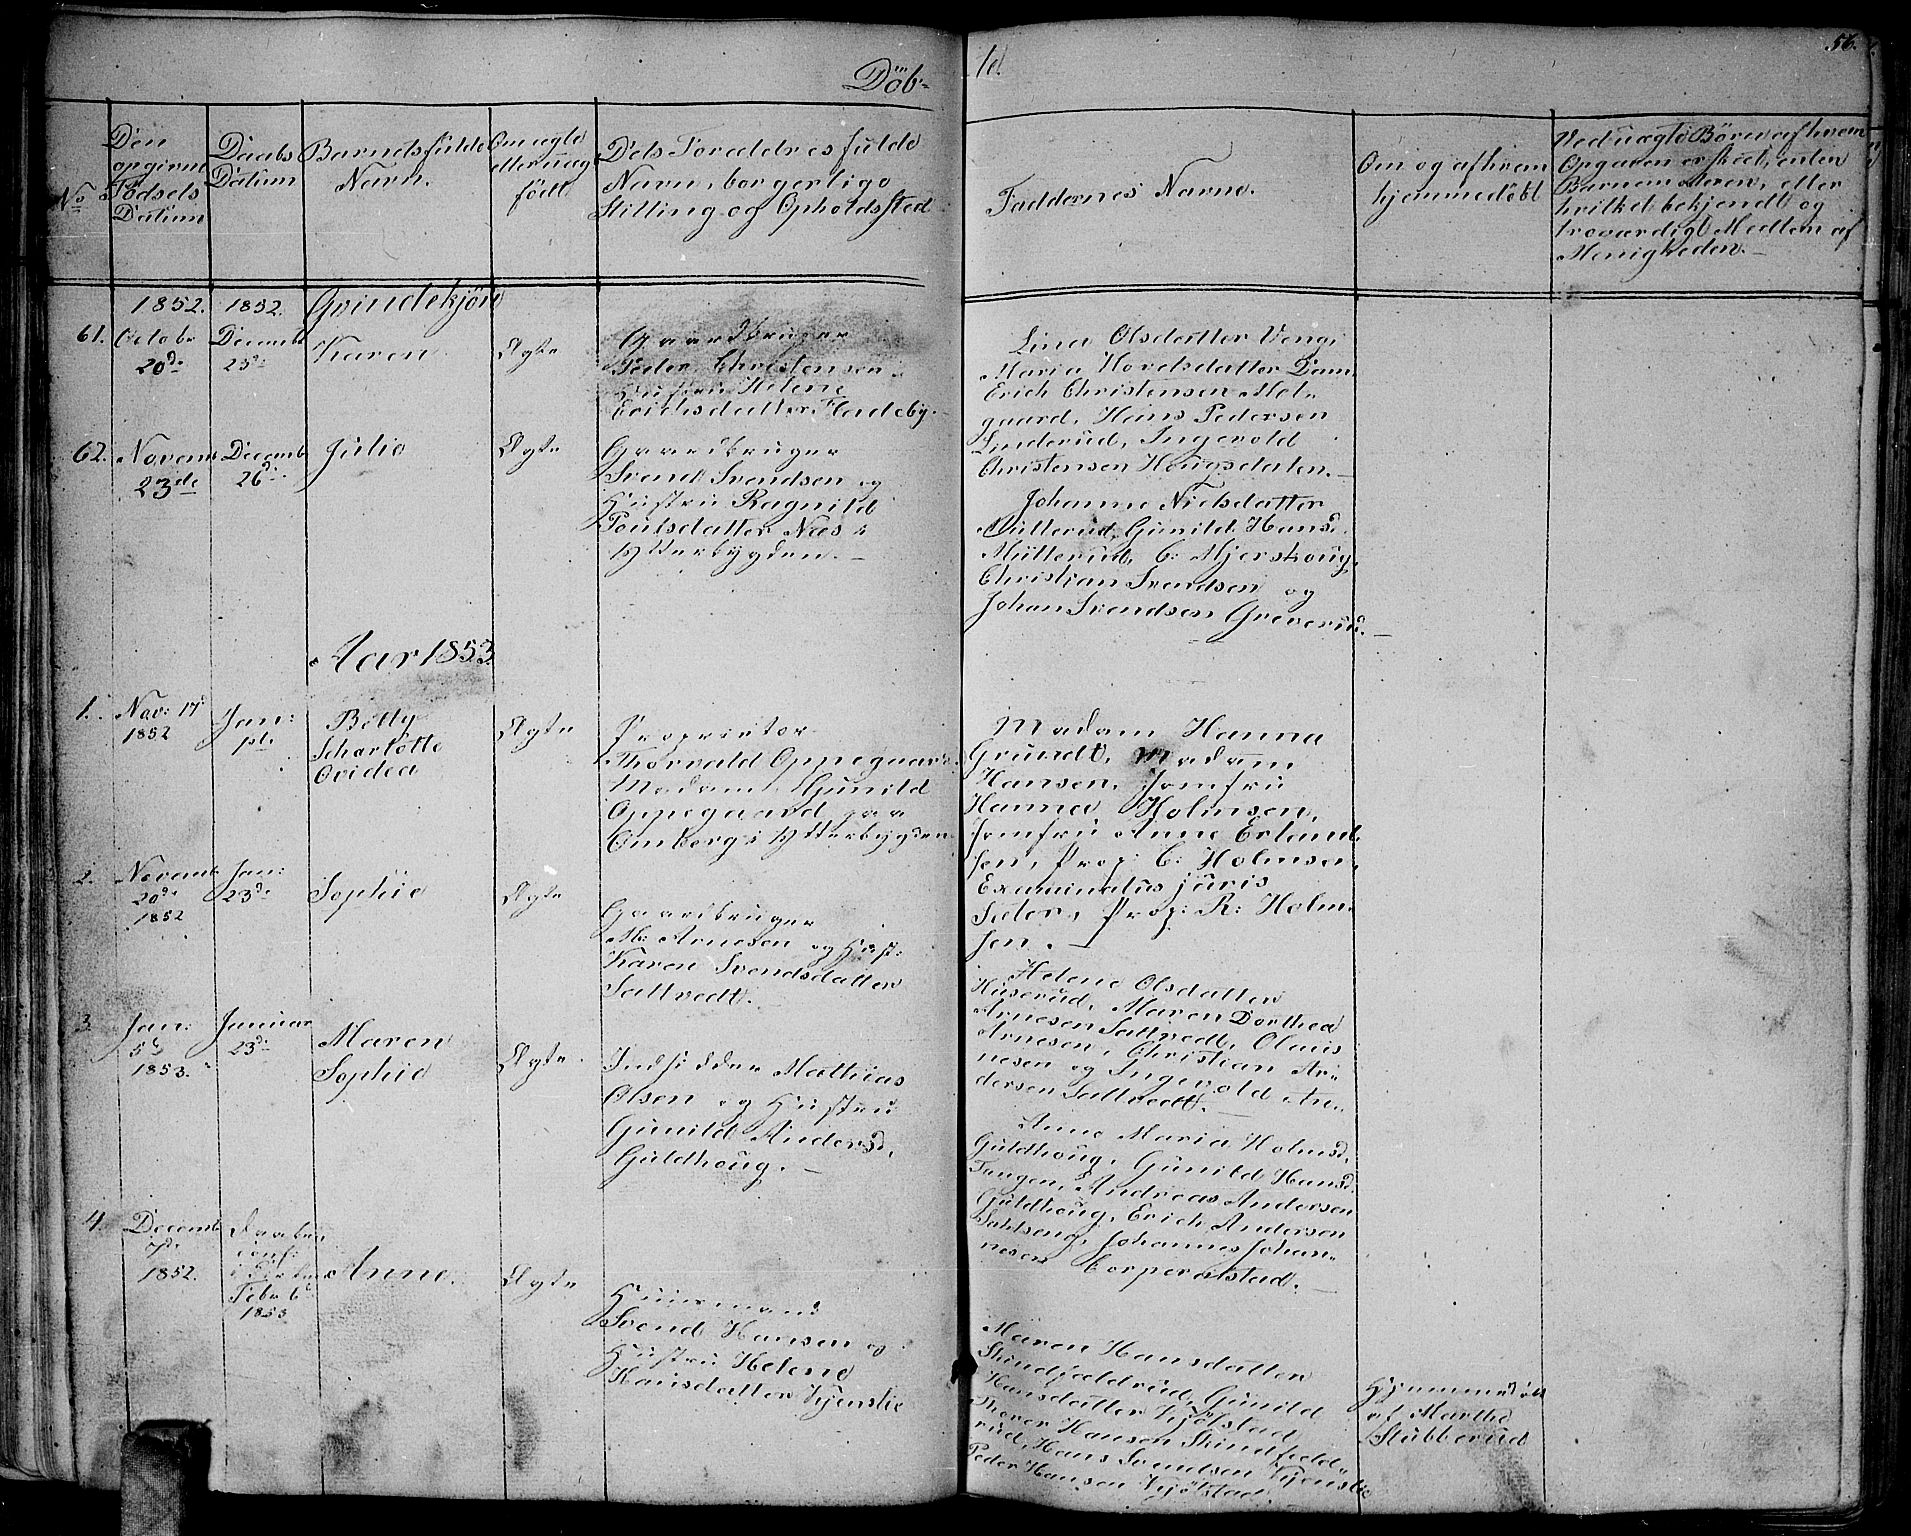 56.
Döb-
te.
No
Den
opgivne
Födsels
Datum
Daabs
Datum
Barnets fulde
Navn.
Om ægte
eller uægte
født
Dets Forældres fulde
Navn, borgerlige
Stilling og Opholdssted
Faddernes Navne.
Om og af hvem
hjemmedøbt
Ved uægte Børn af hvem
Opgaven er skeet, enten
Barnemoderen, eller
hvilket bekjendt og
troværdigt Medlem af
Menigheden.
1852. 1852. Qvindekjøn
61.
Octobr
20de
Decemb
25de
Karen
Ægte
Gaardbruger
Peder Christensen
Hustru Helene
Erichsdatter Fladeby.
Lina Olsdatter Veng,
Maria Hovelsdatter Dam,
Erich Christensen Mel-
gaard, Hans Pedersen
Linderud, Ingevold
Christensen Hougsdalen.
62.
Novemb
23de
Decemb
26de
Julie
Ægte
Gaardbruger
Svend Svendsen og
Hustru Ragnild
Poulsdatter Næs i
Ytterbygden.
Johanne Nielsdatter
Mutterud, Gunild Hansd.
Mütterud, C. Mjerskoug,
Christian Svendsen og
Johan Svendsen Greverud.
Aar 1853
1.
Nov: 17de
1852
Jan:
1ste
Betty
Scharlotte
Ovidea
Ægte
Proprietor
Thorvald Oppegaard
Madam Gunild
Oppegaard paa
Omberg i Ytterbygden
Madam Hanna
Grundt, Madam
Hansen, Jomfru
Hanna Holmsen,
Jomfru Anne Erland-
sen, Prop: C: Holmsen,
Examinatus juris
Sæter, Prop: R: Holm-
sen.
2.
Novemb
20de
1852
Jan:
23de
Sophie
Ægte
Gaardbruger
M: Arnesen og Hust:
Karen Svendsdatter
Saltvedt.
Helene Olsdatter
Huserud, Maren Dorthea
Arnesen Saltvedt, Olaus
Arnesen, Christian Ar-
nesen og Ingevold An-
dersen Saltvedt.
3.
Jan:
5te
1853.
Januar
23de
Maren
Sophie
Ægte
Indsidder Mathias
Olsen og Hustru
Gunild Andersd.
Guldhoug.
Anne Maria Holmsd.
Guldhoug, Gunild Hansd.
Tangen, Andreas Andersen
Guldhoug, Erich Andersen
Sahlseng, Johannes Johan-
nesen Corporalstad.
4.
Decemb
7de
1852.
Daaben
conf:
i Kirken
Febr. 6te
1853
Anne.
Ægte
Huusmand
Svend Hansen og
Hustru Helene
Hansdatter Kjenslie
Maren Hansdatter
Skindfældrud, Gunild
Hansdatter Kjølstad
Thorer Hansen Skindfæld-
rud, Hans Svendsen Kjenslie
Peder Hansen Kjølstad
Hjemmedøbt
af Marthe
Stubberud